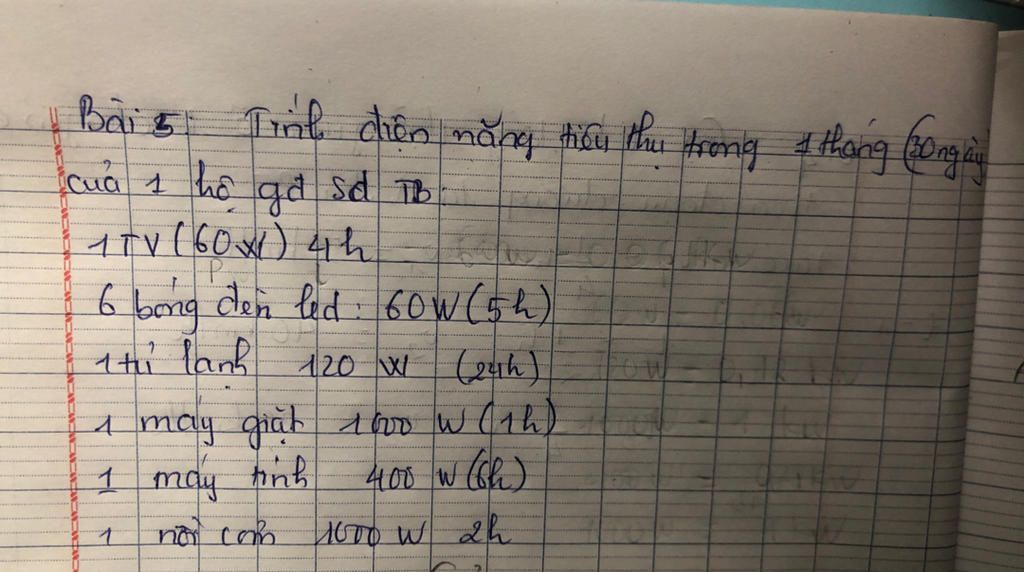 Bài 5: Tính điện năng tiêu thụ trong 1 tháng (30 ngày
của 1 hộ gđ sd TB:
1 TV (60W) 4h
P
6 bóng đèn led: 60W (5h)
1 tủ lạnh 120 W (24h)
1 máy giặt 1000 W (1h)
1 máy tính 400 W (6h)
1 nồi cơm 1000 W 2h